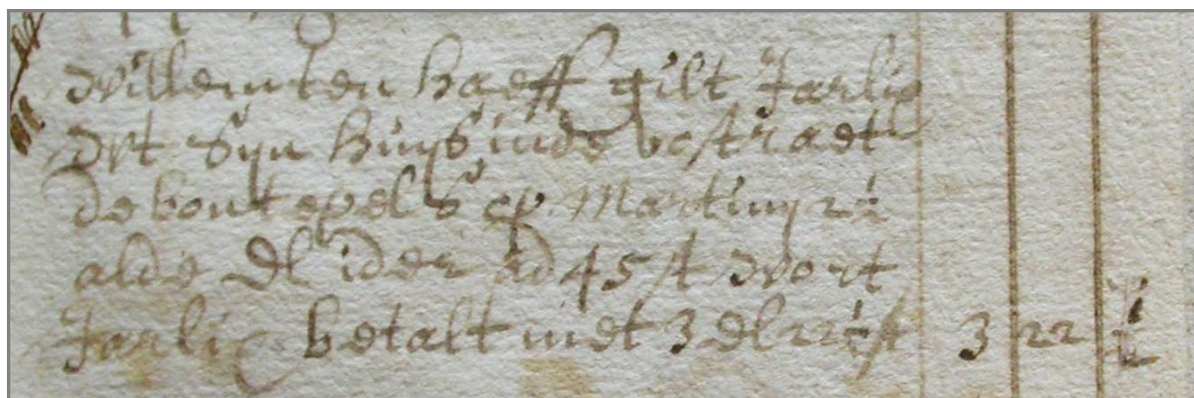 Willem ten haeff gilt Jarlix
Wt Syn huys inde vostraet
de bont epel S op Martiny 2½
alde dl ider ad 45 st wort
Jarlix betalt met 3 dl 22½ st 3 22 ½